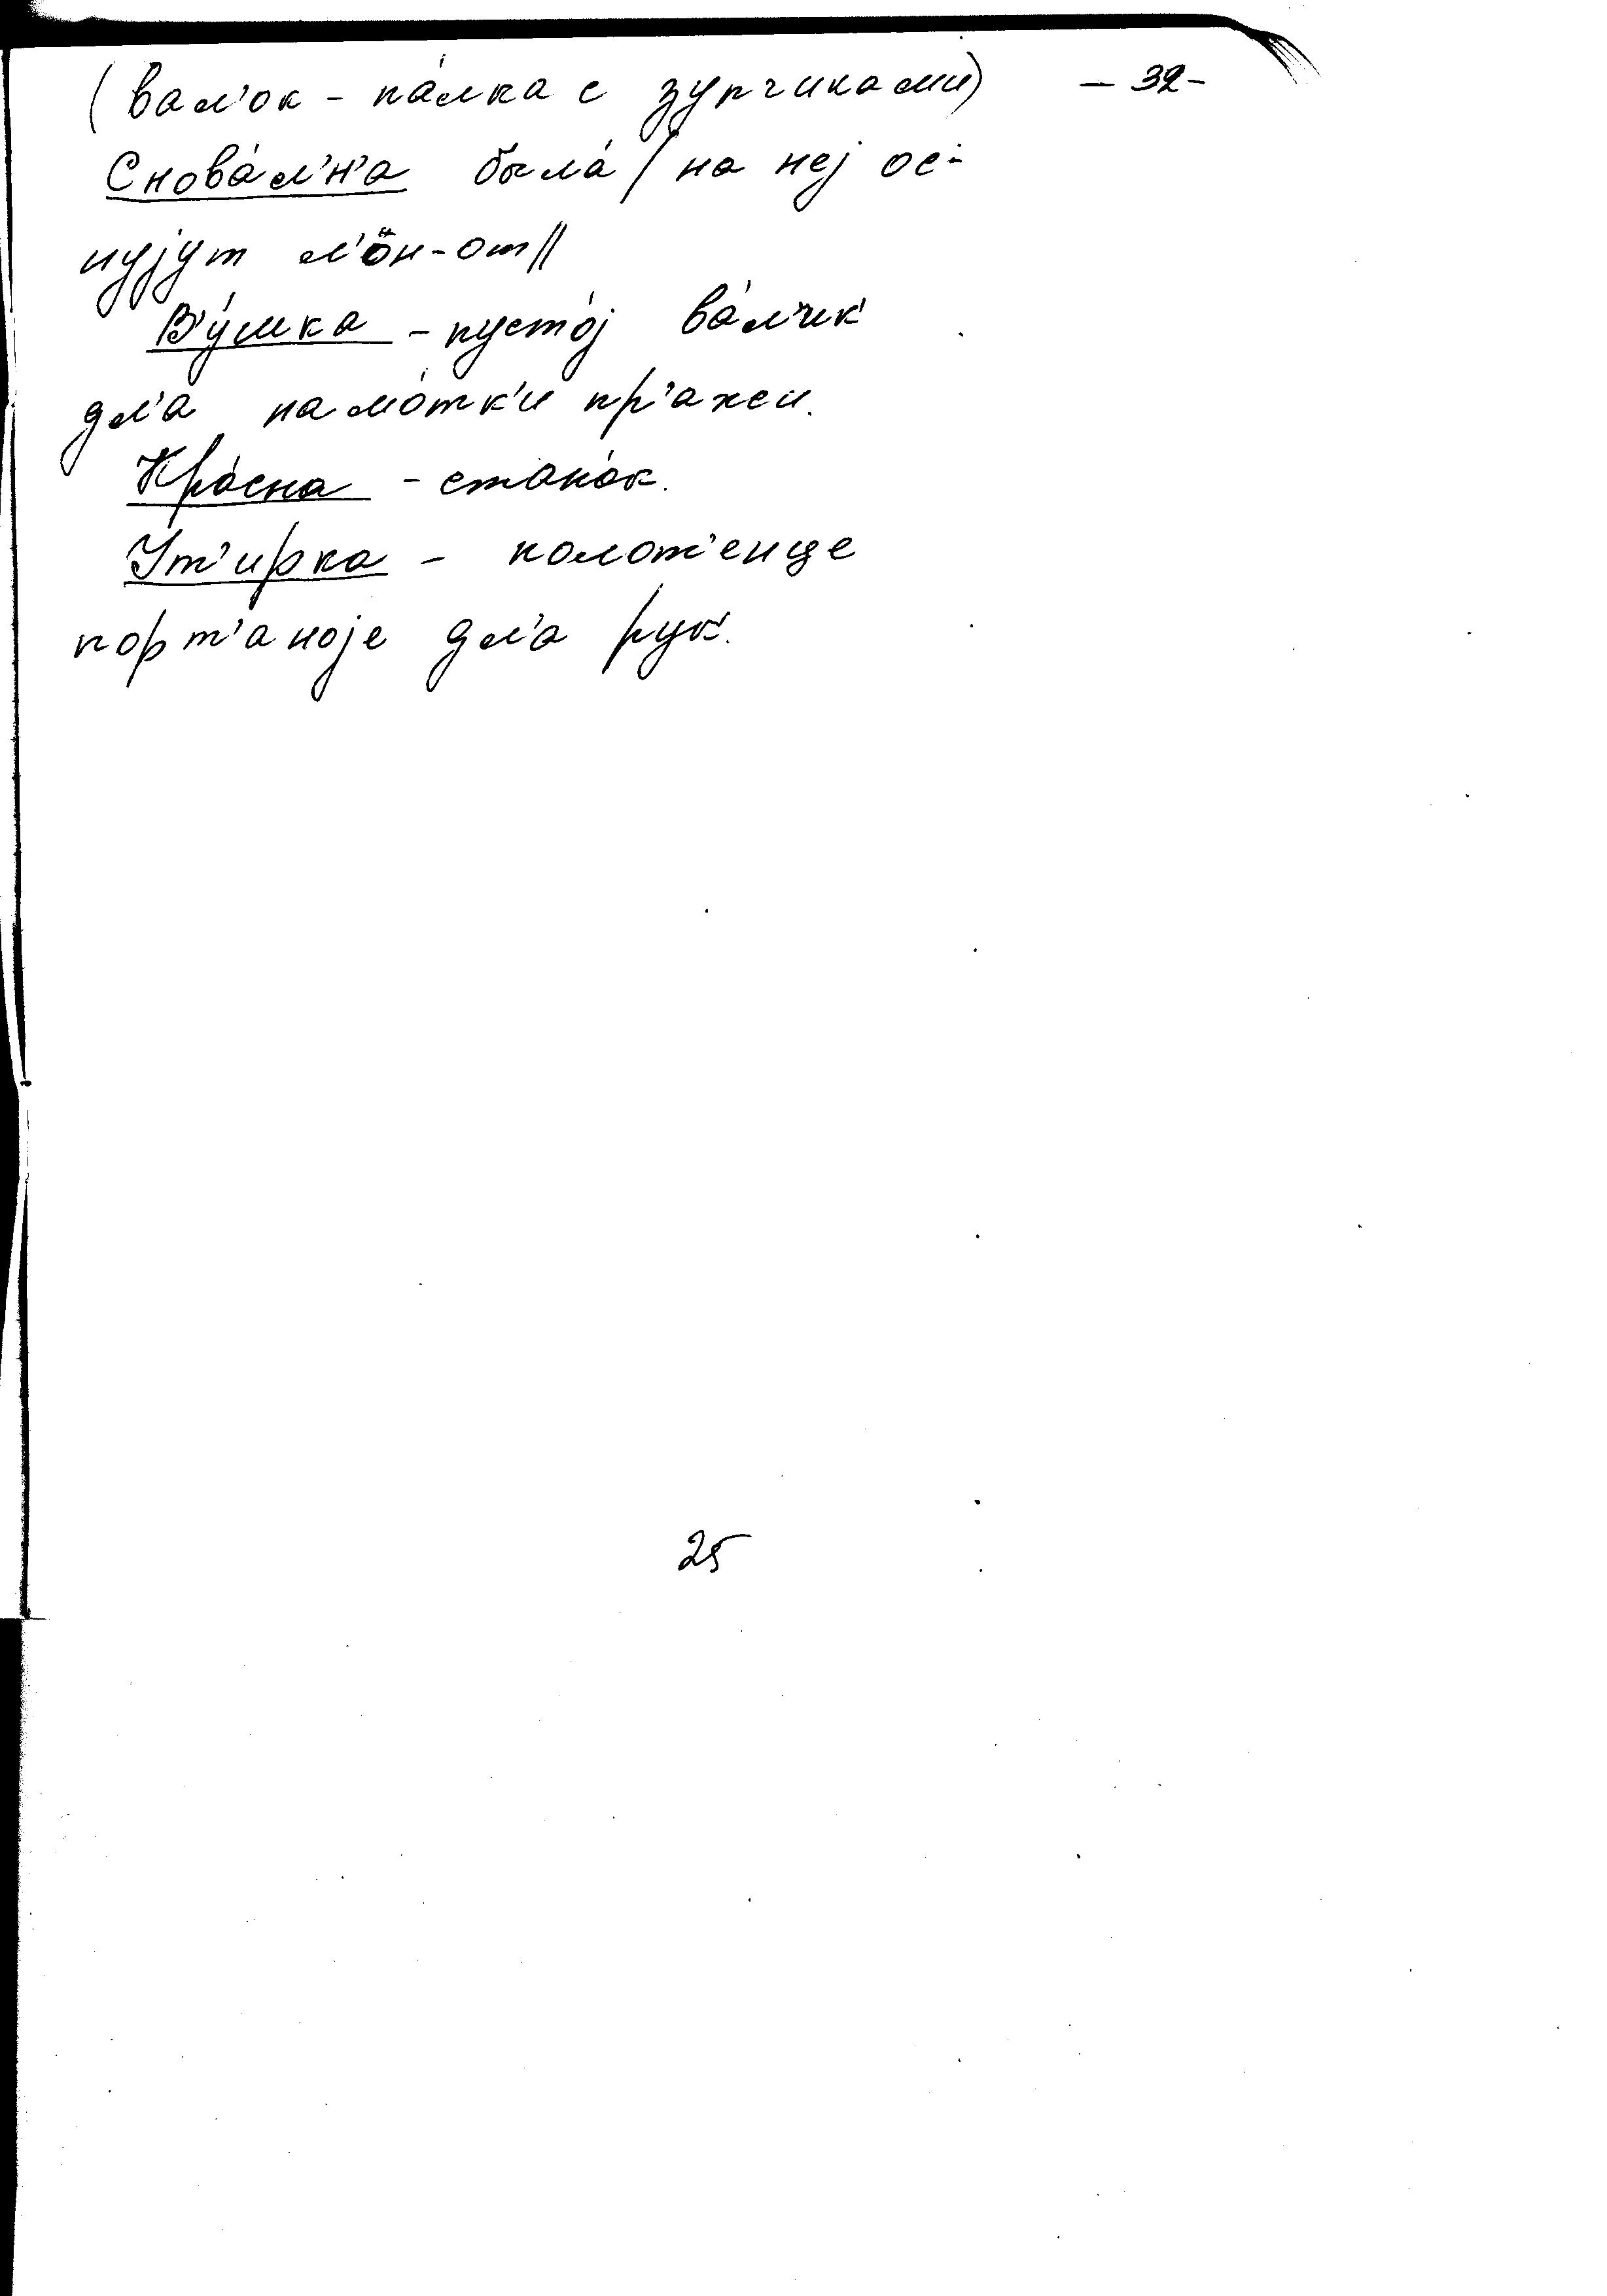 (вал'ок - па́лка с зупчиками) - 32 -
Снова́л'н'а была́ / на неј ос-
нујут л'ӧн-от //
В'у́шка - пусто́ј ва́л'чик
дл'а намо́тк'и пр'ажи.
Кро́сна - стано́к.
Ут'ирка - полот'енце
порт'аноје дл'а рук.
25